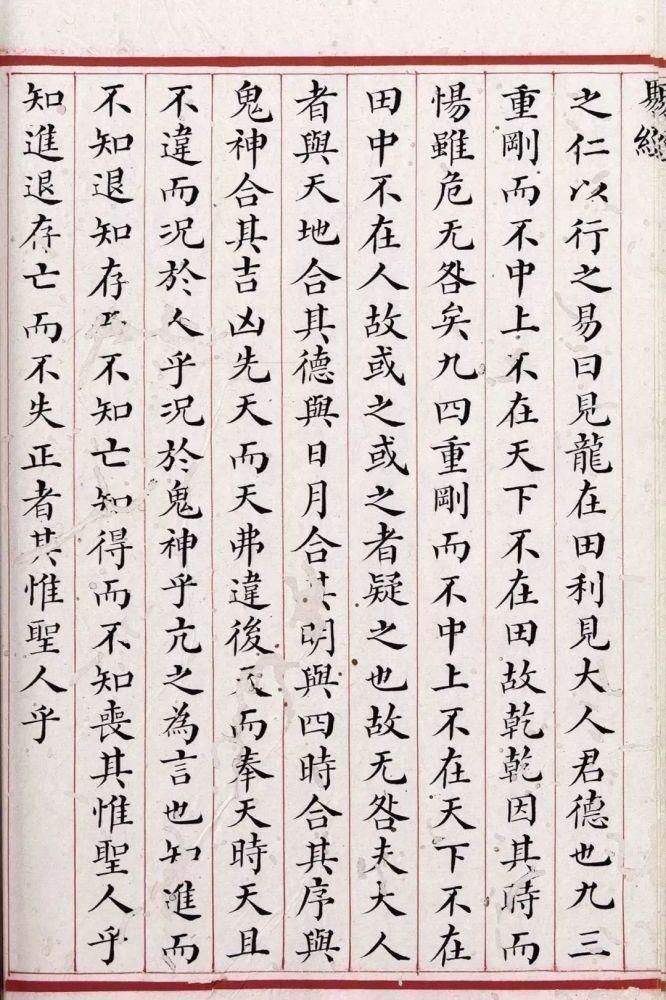 之仁以行之易曰見龍在田利見大人君德也九三
重剛而不中上不在天下不在田故乾乾因其時而
惕雖危无咎矣九四重剛而不中上不在天下不在
田中不在人故或之或之者疑之也故无咎夫大人
者與天地合其德與日月合其明與四時合其序與
鬼神合其吉凶先天而天弗違後天而奉天時天且
不違而况於人乎况於鬼神乎亢之為言也知進而
不知退知存而不知亡知得而不知喪其惟聖人乎
知進退存亡而不失正者其惟聖人乎